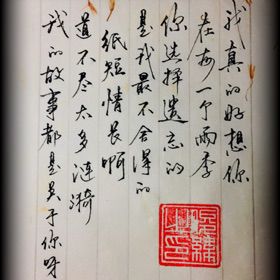 我真的好想你
在每一个雨季
你选择遗忘的
是我最不舍得的
纸短情长啊
道不尽太多涟漪
我的故事都是关于你呀